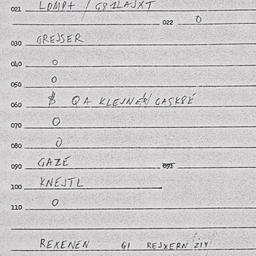 021 LDMP+ / G81LAJXT
022 0
030 GREJSER
040 0
050 0
060 $ QA KLEJNER/ CASKPÉ
070 0
080 0
090 GAZÉ 095
100 KNEJTL
110 0
REXENEN GI REJXERN ZIY